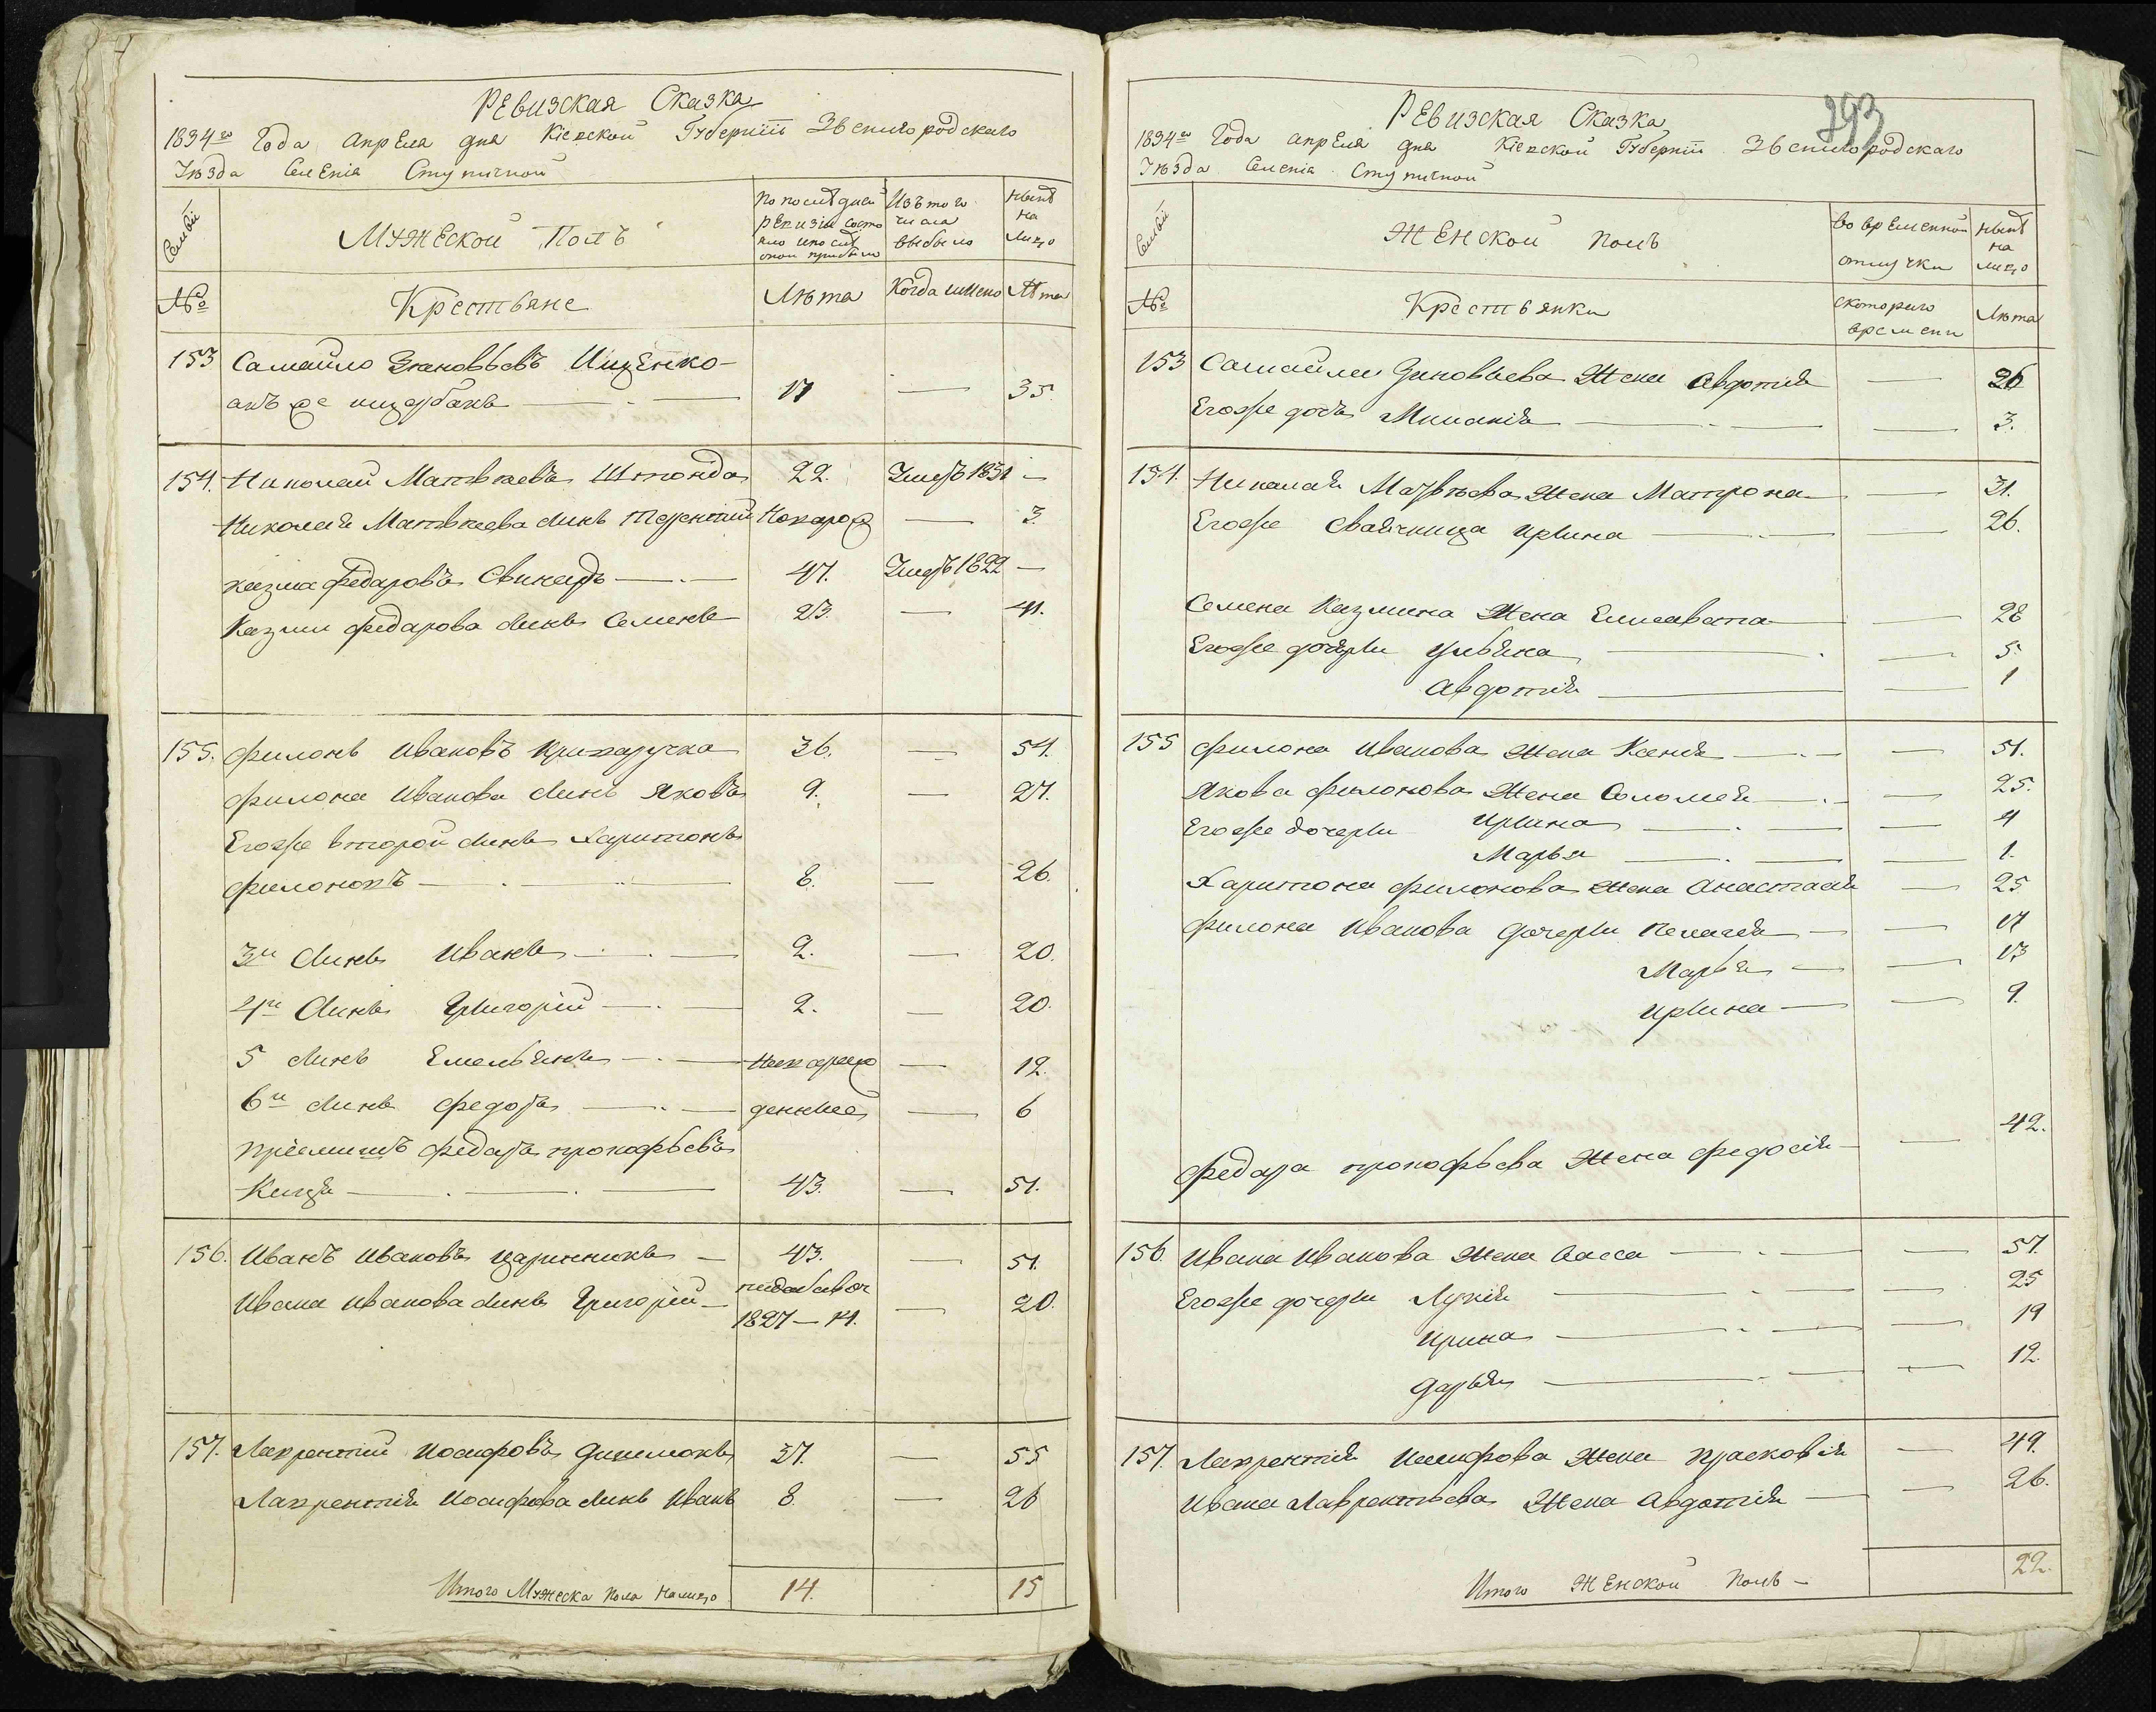 Ревизская Сказка
1834го Года Апреля дня Кіевской Губерніи Звенигородскаго
Уѣзда Селенія Ступичной
Семьи
Мужеской Полъ
По последней ревизіи состояло и после оной прибыло
Изъ того числа выбыло
Нынѣ на лицо
№
Крестьяне
Лѣта
Когда имено
Лѣта
153 Самайло Зѣновьевъ Ищенко
онъ же ищербакъ 17 — 35.
154. Николай Матвѣевъ Штонда 22. Умеръ 1831 —
Николая Матвѣева Синъ Терентий Новорож — 3
Казма Федаровъ Свинаръ 47. Умеръ 1822 —
Казми Федарова Синъ Семенъ 23. — 41.
155. Филонъ Ивановъ Криваручка 36. — 54.
Филона Иванова Синъ Яковъ 9. — 27.
Егоже второй Синъ Харитонъ
Филоновъ 8. — 26.
3й Синъ Иванъ 2. — 20.
4й Синъ Григорій 2. — 20.
5 Синъ Емельянъ Новорож — 12.
6й Синъ Федоръ денние — 6
Пріемишъ Федаръ прокофьевъ
Кищя 43. — 51.
156. Иванъ Ивановъ царинникъ 43. — 51.
Ивана Иванова Синъ Григорій
1827 — 14. — 20.
157. Лаврентий Иосифовъ 37. — 55
Лаврентія Иосифова Синъ Иванъ 8. — 26
Итого Мужеска Пола Налицо 14. 15
293
Ревизская Сказка
1834го Года Апреля дня Кіевской Губерніи Звенигородскаго
Уѣзда Селенія Ступичной
Семьи
Женской Полъ
Во временной отлучки
Нынѣ на лицо
№
Крестьянки
Скотораго времени
Лѣта
153 Самайли Зиновьева Жена Авдотия — 26
Егоже дочь Миланія — 3.
154. Николая Матвѣева Жена Матрона — 31.
Егоже Своячница Ирина — 26.
Семена Казмина Жена Елисавета — 28
Егоже дочери Ульяна — 5.
Авдотия — 1
155 Филона Иванова Жена Ксенія — 51.
Якова Филонова Жена Соломея — 25.
Егоже дочери Ирина — 4
Марья — 1.
Харитона Филонова Жена Анастасия — 25
Филона Иванова дочери Пелагея — 17
Марья — 13
Ирина — 9.
Федара прокофьева Жена Федосія — 42.
156. Ивана Иванова Жена Васса — 51.
Егоже дочери Лукія — 25
Ирина — 19
Дарья — 12.
157. Лаврентія Иосифова Жена Прасковія — 49.
Ивана Лаврентьева Жена Авдотия — 26.
Итого Женской Полъ — 22.